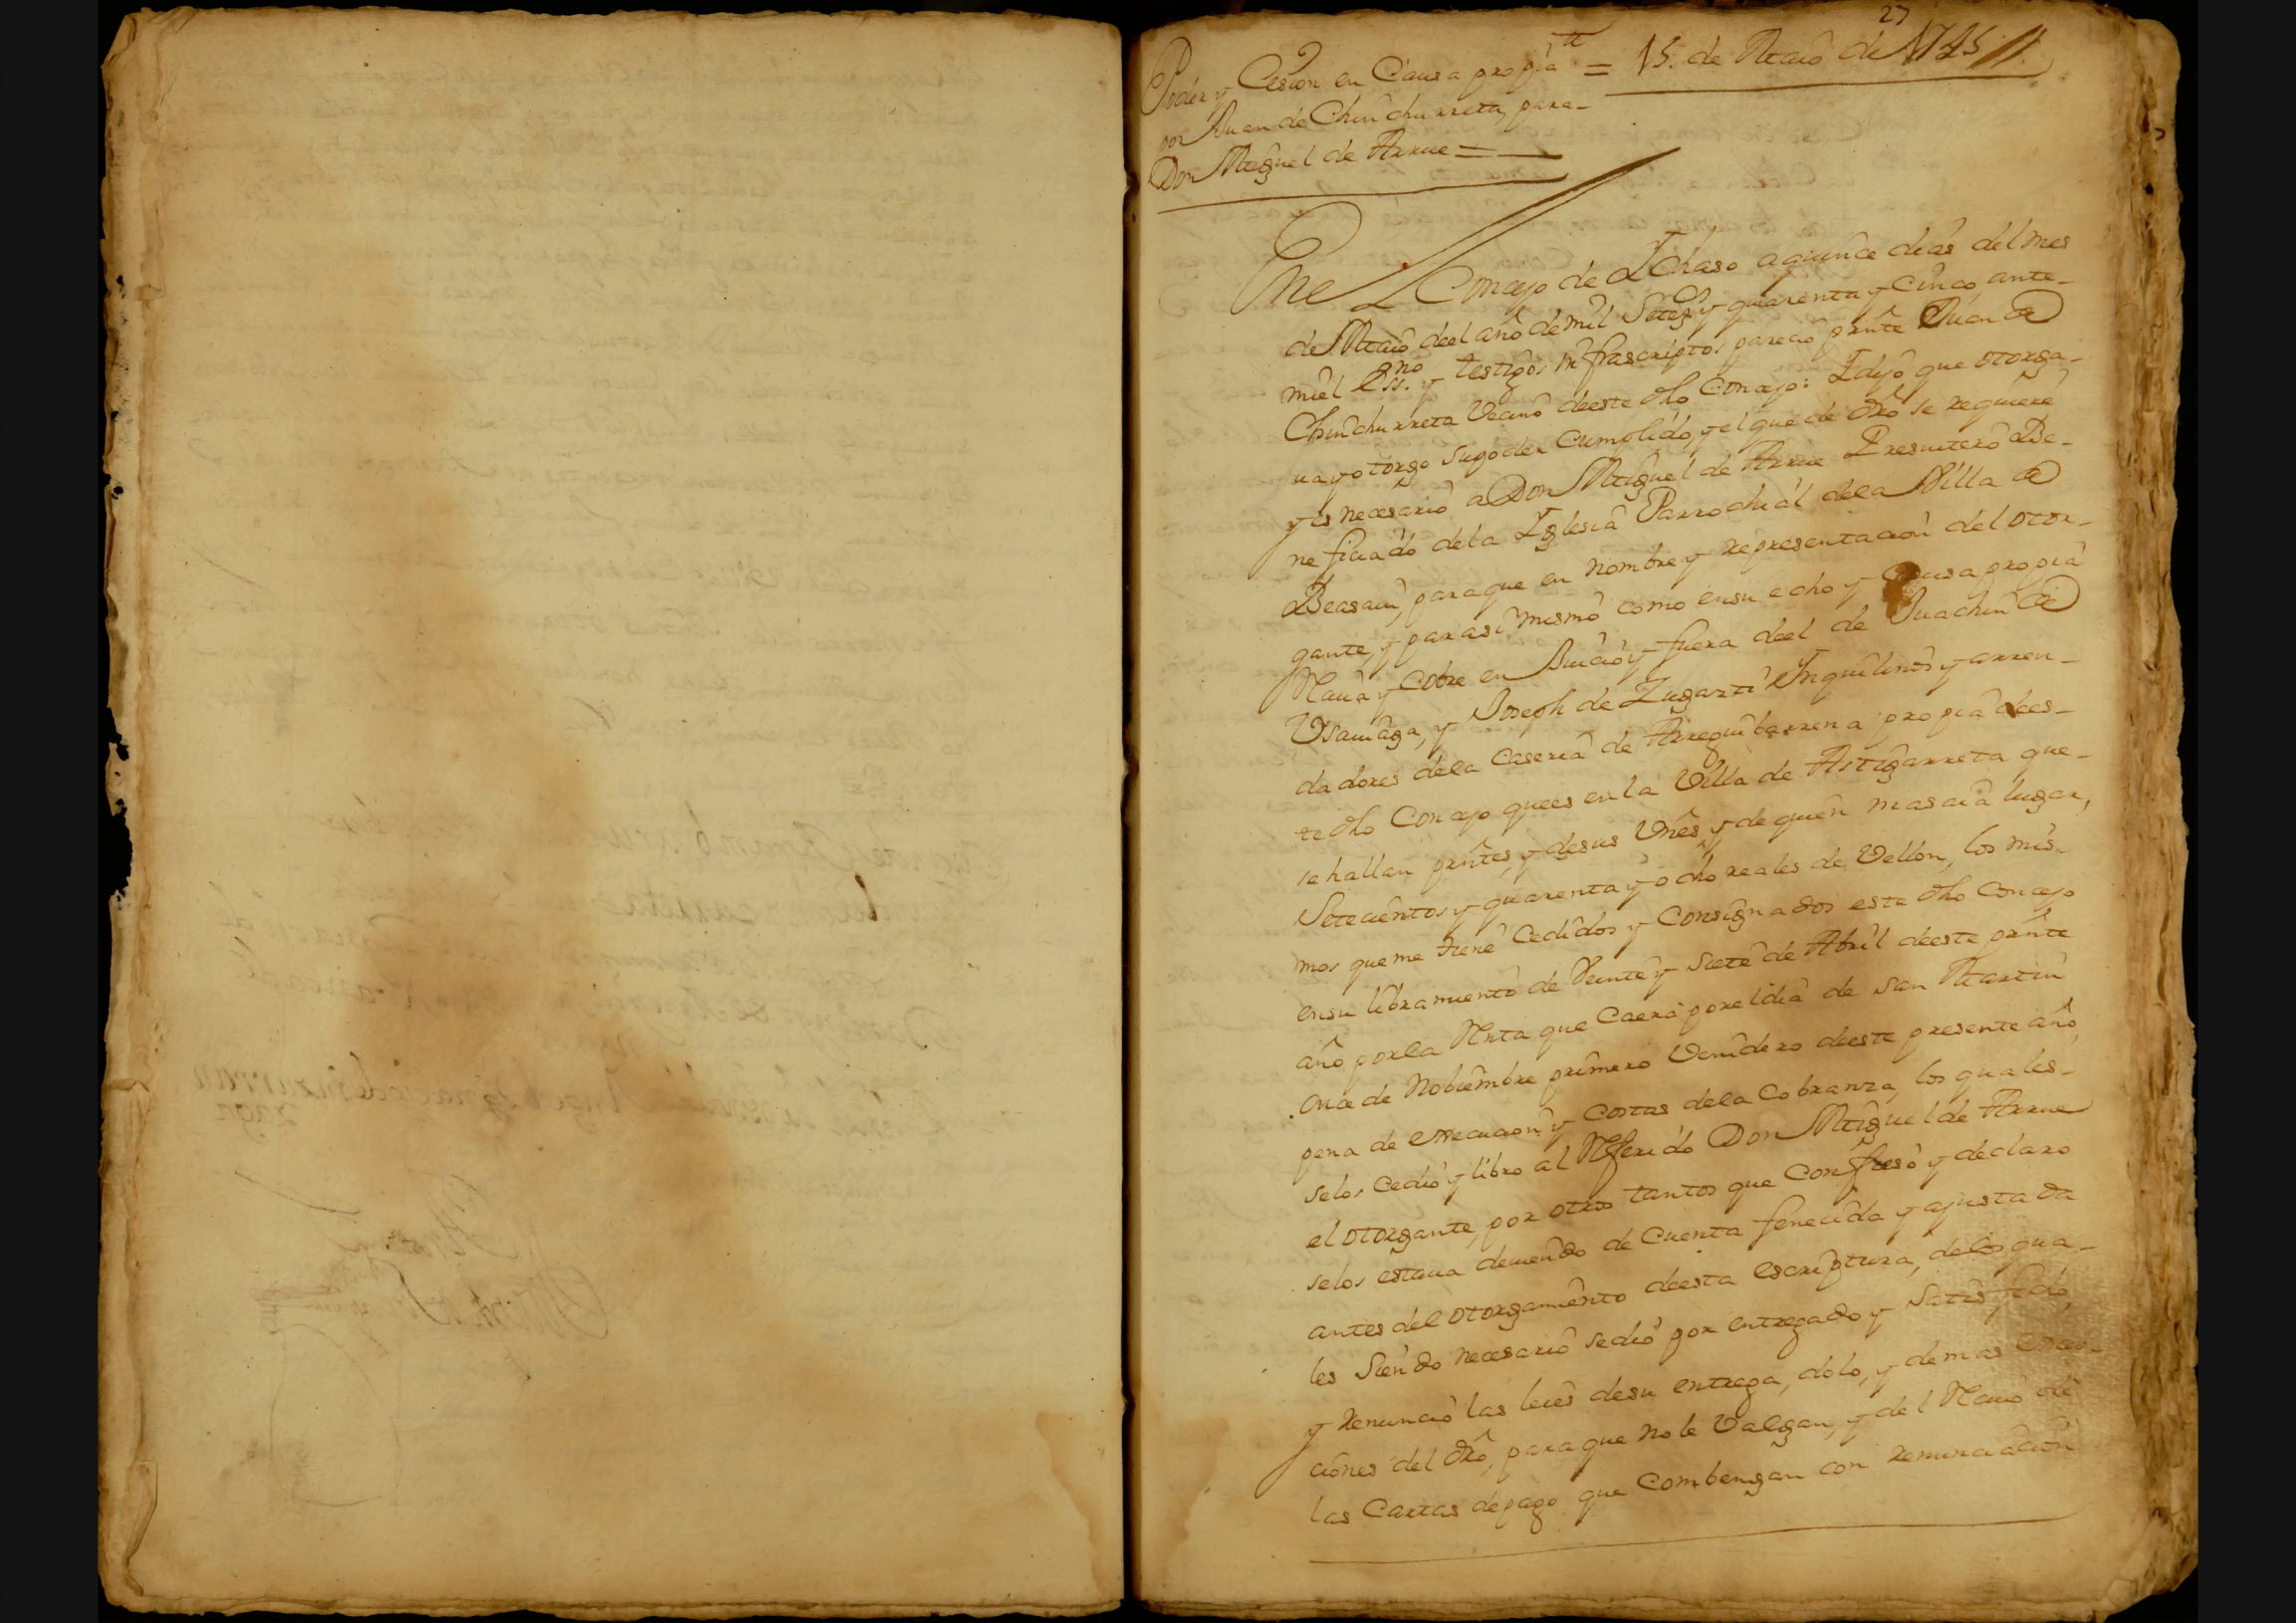 27
Poder y Cesion en Causa propia = 15. de Maio de 1745 //
por Juan de Chinchurreta para
Don Miguel de Arrue =
Ene l Concejo de Ichaso a quince dias del mes
de Maio deel año de mil Setezos y quarenta y Cinco, ante
mi el Essno y testigos infrascriptos parecio prnte Juan de
Chinchurreta Vecino deeste dho Concejo: I dijo que otorga-
ua y otorgo Su poder Cumplido, y el que de dro se requiere
y es necesario a Don Miguel de Arrue Presuitero Be-
neficiado dela Iglesia Parrochial dela Villa de
Beasain, para que en nombre y representacion del otor-
gante, y para si mismo como ensu echo y Causa propia
Reciua y Cobre en Juicio y fuera deel de Juachin de
Vsauiaga, y Joseph de Zugarti Inquilinos y arren-
dadores dela Caseria de Arreguibarrena propia dees-
te dho Concejo quees en la Villa de Astigarreta que-
se hallan prntes, y desus Vnes y de quien mas aia lugar,
Setecientos y quarenta y ocho reales de Vellon, los mis-
mos que me tiene Cedidos y Consignados este dho Concejo
ensu libramiento de Veinte y Siete de Abril deeste prnte
año por la Renta que Caera por el dia de San Martin
once de Nobiembre primero Venidero deeste presente año,
pena de execucion y Costas dela Cobranza, los quales-
selos Cedio y libro al Referido Don Miguel de Arrue
el otorgante, por otros tantos que Confeso y declaro
selos estaua deuiendo de Cuenta fenecida y ajustada
antes del otorgamiento deesta escriptura, delos qua-
les Siendo necesario sedio por entregado y Satisfecho,
y Renuncio las leies desu entrega, dolo, y demas excep-
ciones del dro, para que no le Valgan, y del Reciuo dè
las Cartas de pago que Combengan con renunciacion